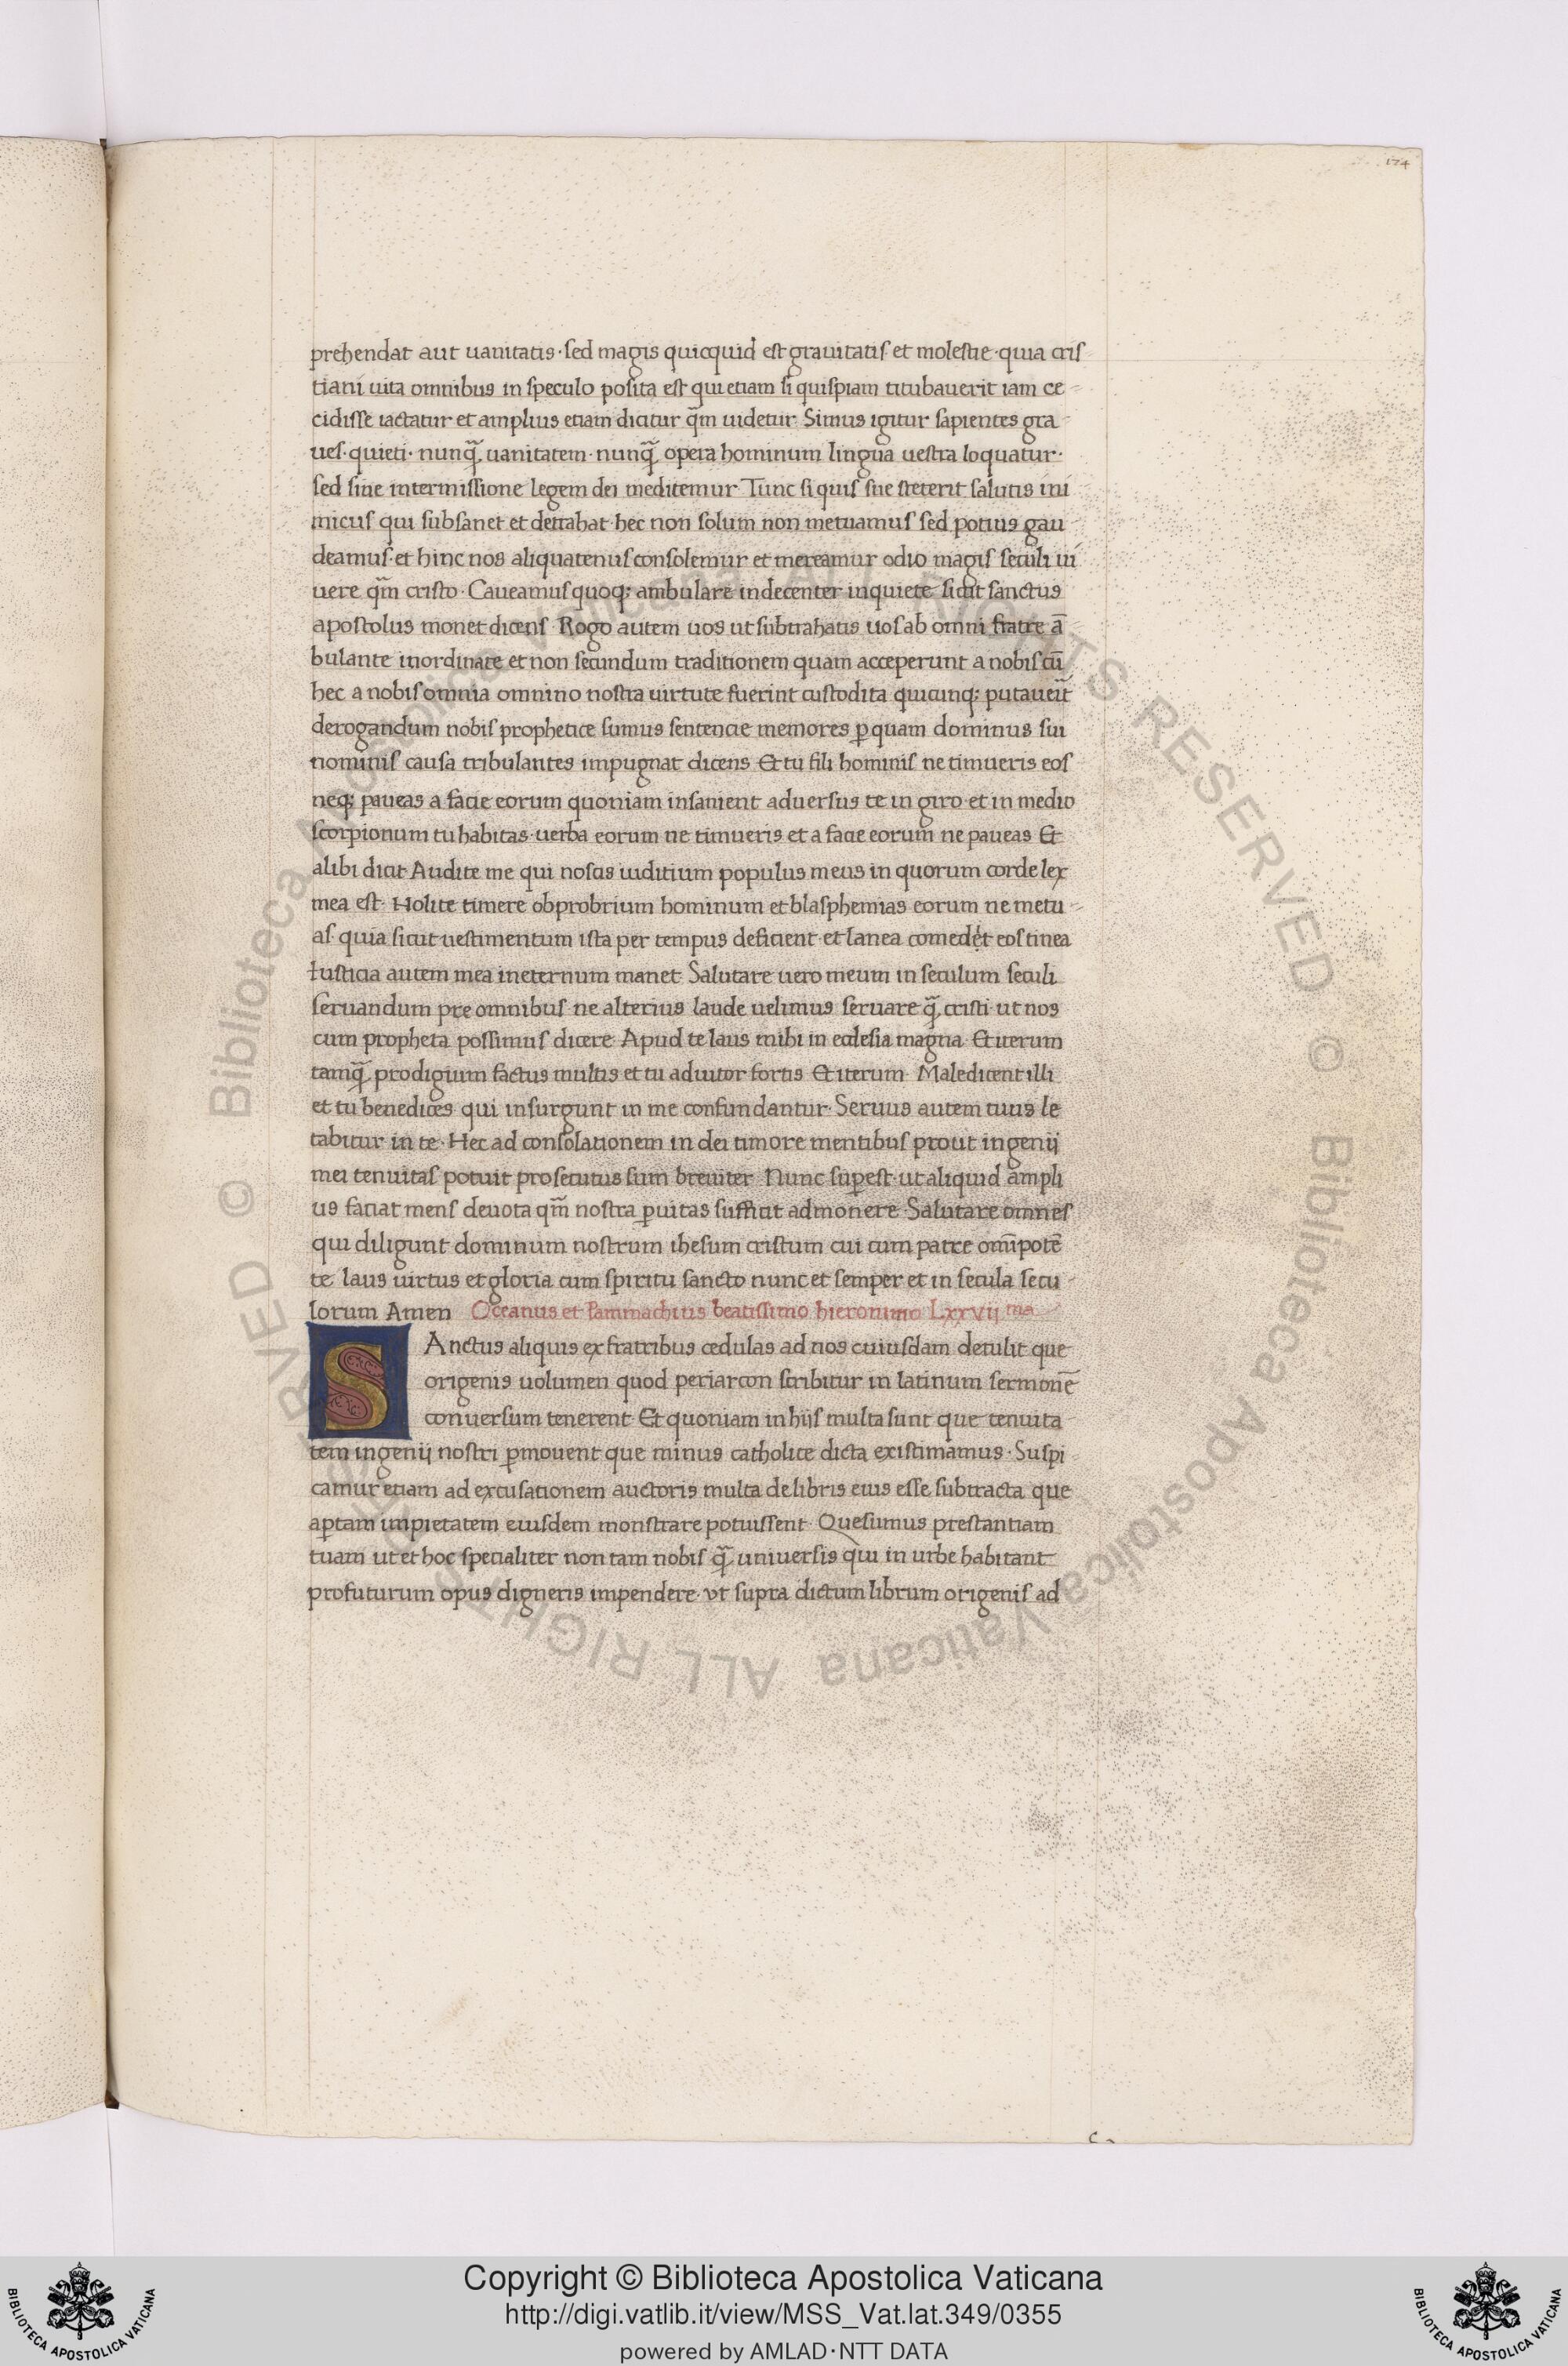 174
prehendat aut uanitatis · sed magis quicquid est grauitatis et molestie · quia cris
tiani uita omnibus in speculo posita est qui etiam si quispiam titubauerit iam ce-
cidisse iactatur et amplius etiam dicitur qm̃ uidetur Simus igitur sapientes gra-
ues · quieti · nunq̃ uanitatem · nunq̃ opera hominum lingua uestra loquatur ·
sed sine intermissione legem dei meditemur Tunc si quis sue steterit salutis ini
micus qui subsanet et detrahat hec non solum non metuamus sed potius gau-
deamus · et hinc nos aliquatenus consolemur et mereamur odio magis seculi ui
uere qm̃ cristo · Caueamus quoq; ambulare indecenter inquiete sicut sanctus
apostolus monet dicens · Rogo autem uos ut subtrahatis uos ab omni fratre ā
bulante inordinate et non secundum traditionem quam acceperunt a nobis cū
hec a nobis omnia omnino nostra uirtute fuerint custodita quicunq; putaueūt
derogandum nobis prophetice sumus sentencie memores ꝑ quam dominus sui
nominis causa tribulantes impugnat dicens Et tu fili hominis ne timueris eos
neq; paueas a facie eorum quoniam insanient aduersus te in giro et in medio
scorpionum tu habitas · uerba eorum ne timueris et a facie eorum ne paueas Et
alibi dicit Audite me qui noscis iuditium populus meus in quorum corde lex
mea est · Nolite timere obprobrium hominum et blasphemias eorum ne metu-
as · quia sicut uestimentum ista per tempus deficient · et lanea comedet eos tinea
Iusticia autem mea in eternum manet Salutare uero meum in seculum seculi
seruandum pre omnibus · ne alterius laude uelimus seruare q̃ cristi ut nos
cum propheta possimus dicere Apud te laus mihi in ecclesia magna Et iterum
tamq̃ prodigium factus multis et tu adiutor fortis Et iterum · Maledicent illi
et tu benedices qui insurgunt in me confundantur · Seruus autem tuus le
tabitur in te · Hec ad consolationem in dei timore mentibus prout ingenij
mei tenuitas potuit prosecutus sum breuiter Nunc suꝑest · ut aliquid ampli
us faciat mens deuota qm̃ nostra ꝑuitas sufficit admonere Salutare omnes
qui diligunt dominum nostrum ihesum cristum cui cum patre omīpotē
te laus uirtus et gloria cum spiritu sancto nunc et semper et in secula secu-
lorum Amen Oceanus et Pammachius beatissimo hieronimo Lxxvij ma
SAnctus aliquis ex fratribus cedulas ad nos cuiusdam detulit que
origenis uolumen quod periarcon scribitur in latinum sermonē
conuersum tenerent Et quoniam in hijs multa sunt que tenuita-
tem ingenij nostri ꝑmouent que minus catholice dicta existimamus · Suspi-
camur etiam ad excusationem auctoris multa de libris eius esse subtracta que
aꝑtam impietatem eiusdem monstrare potuissent Quesumus prestantiam
tuam ut et hoc specialiter non tam nobis q̃ uniuersis qui in urbe habitant
profuturum opus digneris impendere · ut supra dictum librum origenis ad
© Biblioteca Apostolica Vaticana ALL RIGHTS RESERVED © Biblioteca Apostolica Vaticana ALL RIGHTS RESERVED
Copyright © Biblioteca Apostolica Vaticana
http://digi.vatlib.it/view/MSS_Vat.lat.349/0355
powered by AMLAD·NTT DATA
BIBLIOTECA APOSTOLICA VATICANA
BIBLIOTECA APOSTOLICA VATICANA